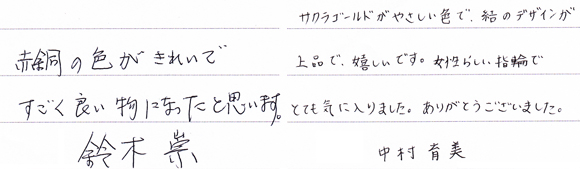 赤銅の色がきれいで
すごく良い物になったと思います。
鈴木 崇
サクラゴールドがやさしい色で、結のデザインが
上品で、嬉しいです。女性らしい指輪で
とても気に入りました。ありがとうございました。
中村 育美